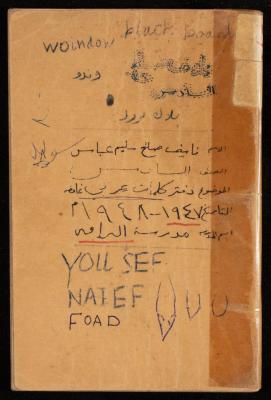 woindow black board
وندو
السادس
بلاك بورد
الاسم نايف صالح سليم عباس
الصف السادس
الموضوع دفتر كلمات عربي عامه
التاريخ ١٩٤٧-١٩٤٨ م
مدرسة الرامه
YOLLSEF
NAIEF
FOAD